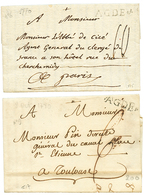 AGDE
A Monsieur
Monsieur l'abbé de Cicé
Agent General du Clergé de
france a son hôtel rue du
cherchemidy
A paris
AGDE
A Monsieur
Monsieur Pin directeur
général du canal
St Etienne
A Toulouse